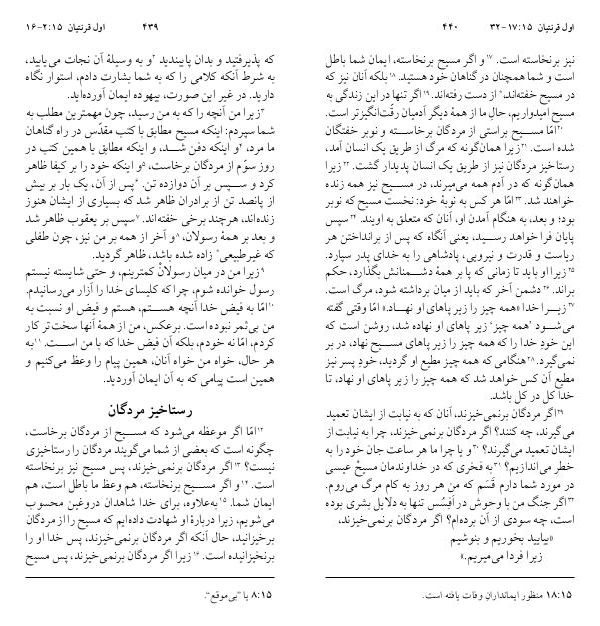 ۴۳۹ اول قرنتیان ۱۵:‏۲-۱۶
که پذیرفتید و بدان پایبندید ۲و به وسیلهٔ آن نجات می‌یابید،
به شرط آنکه کلامی را که به شما بشارت دادم، استوار نگاه
دارید. در غیر این صورت، بیهوده ایمان آورده‌اید.
۳زیرا من آنچه را که به من رسید، چون مهمترین مطلب به
شما سپردم: اینکه مسیح مطابق با کتب مقدّس در راه گناهان
ما مرد، ۴و اینکه دفن شد، و اینکه مطابق با همین کتب در
روز سوّم از مردگان برخاست، ۵و اینکه خود را بر کیفا ظاهر
کرد و سپس بر آن دوازده تن. ۶پس از آن، یک بار بر بیش
از پانصد تن از برادران ظاهر شد که بسیاری از ایشان هنوز
زنده‌اند، هرچند برخی خفته‌اند. ۷سپس بر یعقوب ظاهر شد
و بعد بر همهٔ رسولان، ۸و آخر از همه بر من نیز، چون طفلی
که غیرطبیعی* زاده شده باشد، ظاهر گردید.
۹زیرا من در میان رسولانْ کمترینم، و حتی شایسته نیستم
رسول خوانده شوم، چرا که کلیسای خدا را آزار می‌رسانیدم.
۱۰امّا به فیض خدا آنچه هستم، هستم و فیض او نسبت به
من بی‌ثمر نبوده است. برعکس، من از همهٔ آنها سخت‌تر کار
کردم، امّا نه خودم، بلکه آن فیض خدا که با من است. ۱۱به
هر حال، خواه من خواه آنان، همین پیام را وعظ می‌کنیم و
همین است پیامی که به آن ایمان آوردید.
رستاخیز مردگان
۱۲امّا اگر موعظه می‌شود که مسیح از مردگان برخاست،
چگونه است که بعضی از شما می‌گویند مردگان را رستاخیزی
نیست؟ ۱۳اگر مردگان برنمی‌خیزند، پس مسیح نیز برنخاسته
است. ۱۴و اگر مسیح برنخاسته، هم وعظ ما باطل است، هم
ایمان شما. ۱۵به‌علاوه، برای خدا شاهدان دروغین محسوب
می‌شویم، زیرا دربارهٔ او شهادت داده‌ایم که مسیح را از مردگان
برخیزانید، حال آنکه اگر مردگان برنمی‌خیزند، پس خدا او را
برنخیزانیده است. ۱۶زیرا اگر مردگان برنمی‌خیزند، پس مسیح
۱۵:‏۸ یا ”بی‌موقع“.
اول قرنتیان ۱۵:‏۱۷-۳۲ ۴۴۰
نیز برنخاسته است. ۱۷و اگر مسیح برنخاسته، ایمان شما باطل
است و شما همچنان در گناهان خود هستید. ۱۸بلکه آنان نیز که
در مسیح خفته‌اند،* از دست رفته‌اند. ۱۹اگر تنها در این زندگی به
مسیح امیدواریم، حالِ ما از همهٔ دیگر آدمیان رقت‌انگیزتر است.
۲۰امّا مسیح براستی از مردگان برخاسته و نوبر خفتگان
شده است. ۲۱زیرا همان‌گونه که مرگ از طریق یک انسان آمد،
رستاخیز مردگان نیز از طریق یک انسان پدیدار گشت. ۲۲زیرا
همان‌گونه که در آدم همه می‌میرند، در مسیح نیز همه زنده
خواهند شد. ۲۳امّا هر کس به نوبهٔ خود: نخست مسیح که نوبر
بود؛ و بعد، به هنگام آمدن او، آنان که متعلق به اویند. ۲۴سپس
پایان فرا خواهد رسید، یعنی آنگاه که پس از برانداختن هر
ریاست و قدرت و نیرویی، پادشاهی را به خدای پدر سپارد.
۲۵زیرا او باید تا زمانی که پا بر همهٔ دشمنانش بگذارد، حکم
براند. ۲۶دشمن آخر که باید از میان برداشته شود، مرگ است.
۲۷زیرا خدا «همه چیز را زیر پاهای او نهاد.» امّا وقتی گفته
می‌شود ’همه چیز‘ زیر پاهای او نهاده شد، روشن است که
این خودِ خدا را که همه چیز را زیر پاهای مسیح نهاد، در بر
نمی‌گیرد. ۲۸هنگامی که همه چیز مطیع او گردید، خودِ پسر نیز
مطیع آن کس خواهد شد که همه چیز را زیر پاهای او نهاد، تا
خدا کل در کل باشد.
۲۹اگر مردگان برنمی‌خیزند، آنان که به نیابت از ایشان تعمید
می‌گیرند، چه کنند؟ اگر مردگان برنمی‌خیزند، چرا به نیابت از
ایشان تعمید می‌گیرند؟ ۳۰و یا چرا ما هر ساعت جان خود را به
خطر می‌اندازیم؟ ۳۱به فخری که در خداوندمان مسیحْ عیسی
در مورد شما دارم قَسَم که من هر روز به کام مرگ می‌روم.
۳۲اگر جنگ من با وحوش در اَفِسُس تنها به دلایل بشری بوده
است، چه سودی از آن برده‌ام؟ اگر مردگان برنمی‌خیزند،
«بیایید بخوریم و بنوشیم
زیرا فردا می‌میریم.»
۱۵:‏۱۸ منظور ایمانداران وفات یافته است.